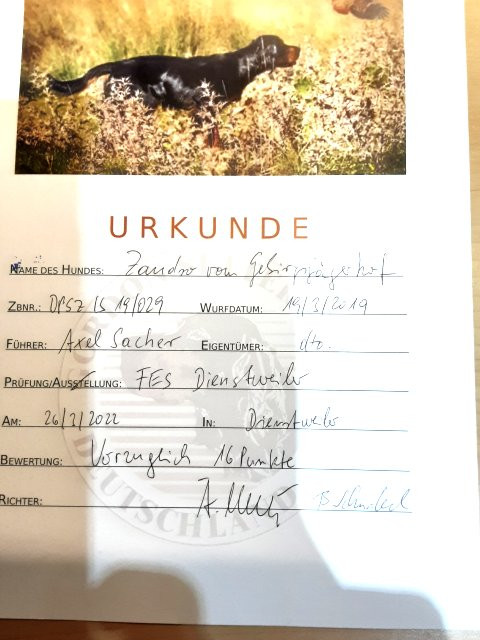 URKUNDE
NAME DES HUNDES: Zandro vom Gebirgsjägerhof
ZBNR.: DPSZ IS 19/029 WURFDATUM: 19/3/2019
FÜHRER: Axel Sacher EIGENTÜMER: dto.
PRÜFUNG/AUSSTELLUNG: FES Dienstweiler
AM: 26/3/2022 IN: Dienstweiler
BEWERTUNG: Vorzüglich 16 Punkte
RICHTER:
DEUTSCHLAND